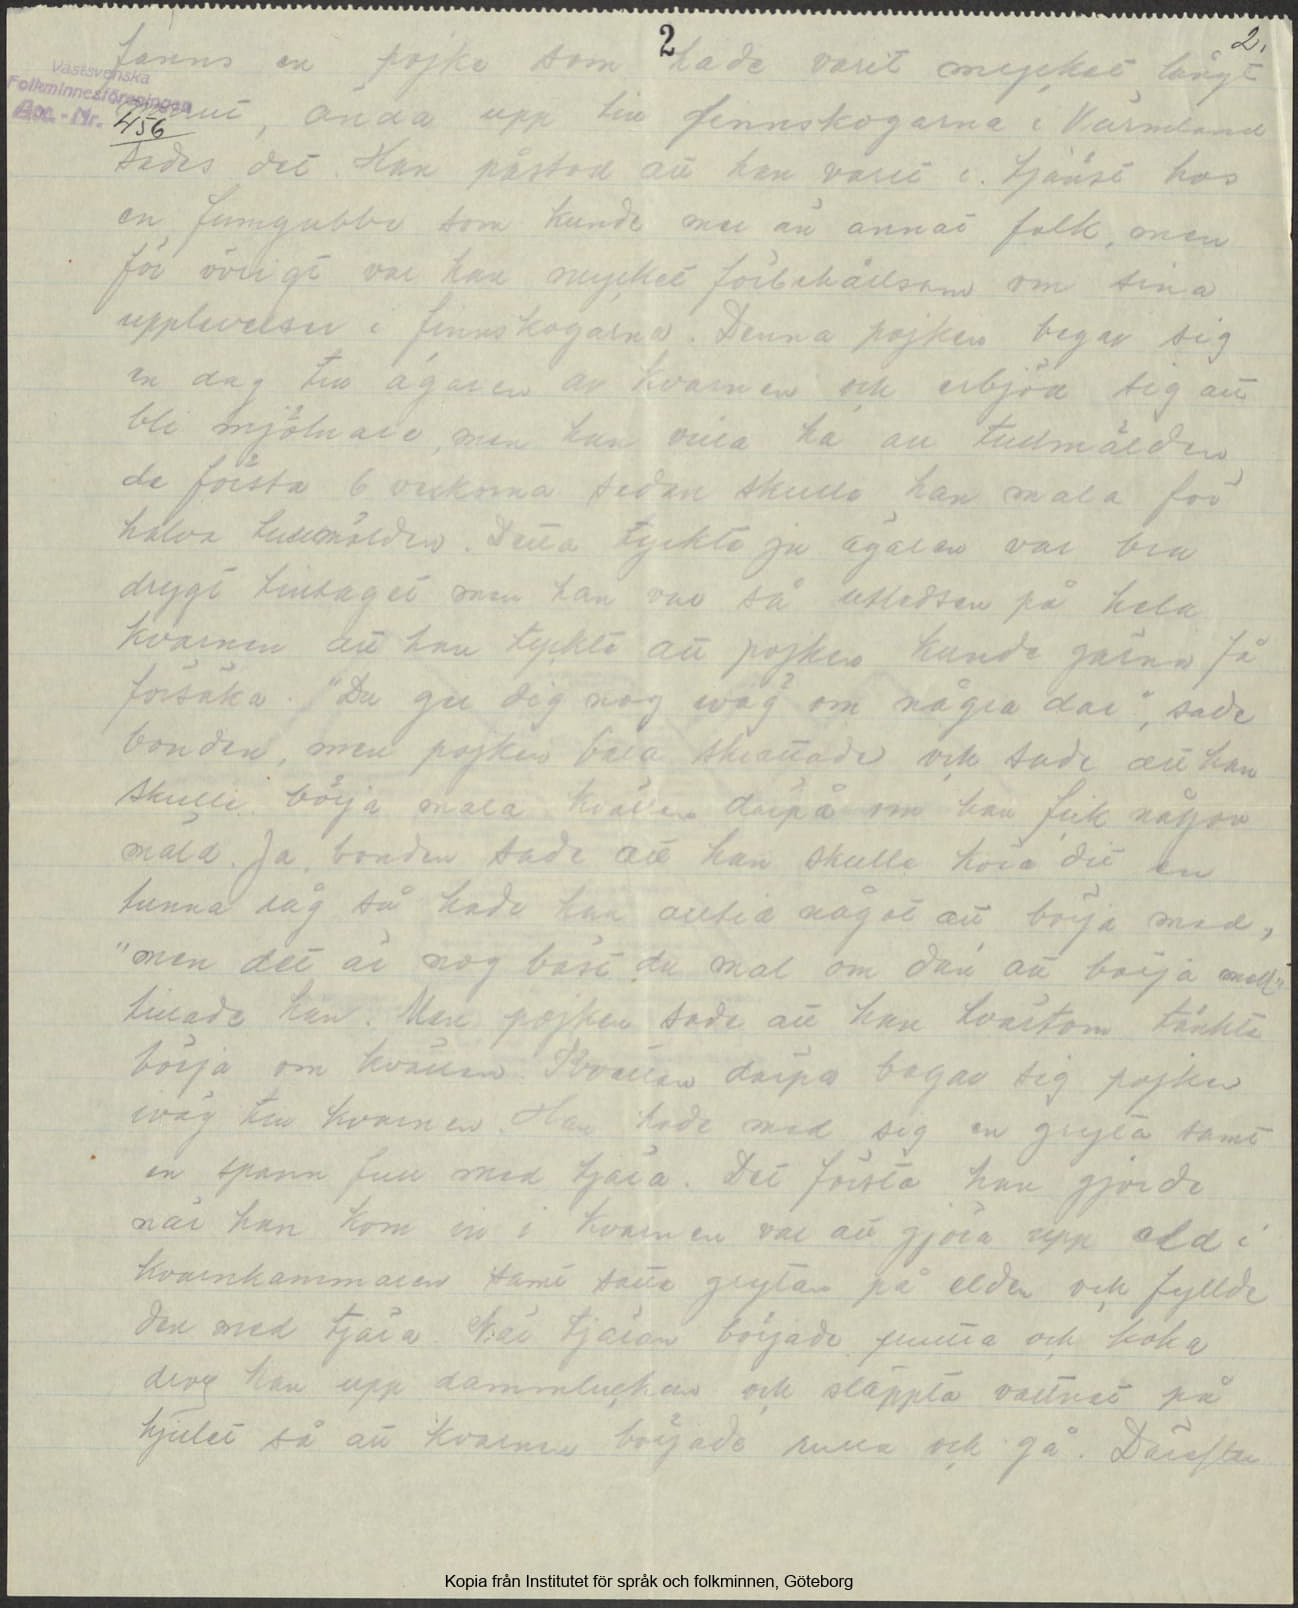 2
2.
fanns en pojke som hade varit mycket långt
Västsvenska
Folkminnesföreningen
Acc.-Nr. 456
ut, ända upp till finnskogarna i Värmland
sades det. Han påstod att han varit i tjänst hos
en finngubbe som kunde mer än annat folk, men
för övrigt var han mycket förbehållsam om sina
upplevelser i finnskogarna. Denna pojken begav sig
en dag till ägaren av kvarnen och erbjöd sig att
bli mjölnare, men han ville ha all tullmälden
de första 6 veckorna sedan skulle han mala för
halva tullmälden. Detta tyckte ju ägaren var bra
drygt tilltaget men han var så utledsen på hela
kvarnen att han tyckte att pojken kunde gärna få
försöka. "Du ger dig nog iväg om några dar", sade
bonden, men pojken bara skrattade och sade att han
skulle börja mala kvällen därpå om han fick någon
mäld. Ja, bonden sade att han skulle köra dit en
tunna råg så hade han alltid något att börja med,
"men det är nog bäst du mal om dan att börja med"
tillade han. Men pojken sade att han tvärtom tänkte
börja om kvällen. Kvällen därpå begav sig pojken
iväg till kvarnen. Han hade med sig en gryta samt
en spann full med tjära. Det första han gjorde
när han kom in i kvarnen var att gjöra upp eld i
kvarnkammaren samt satte grytan på elden och fyllde
den med tjära. När tjäran började puttra och koka
drog han upp dammluckan och släppte vattnet på
hjulet så att kvarnen började rulla och gå. Därefter
Kopia från Institutet för språk och folkminnen, Göteborg